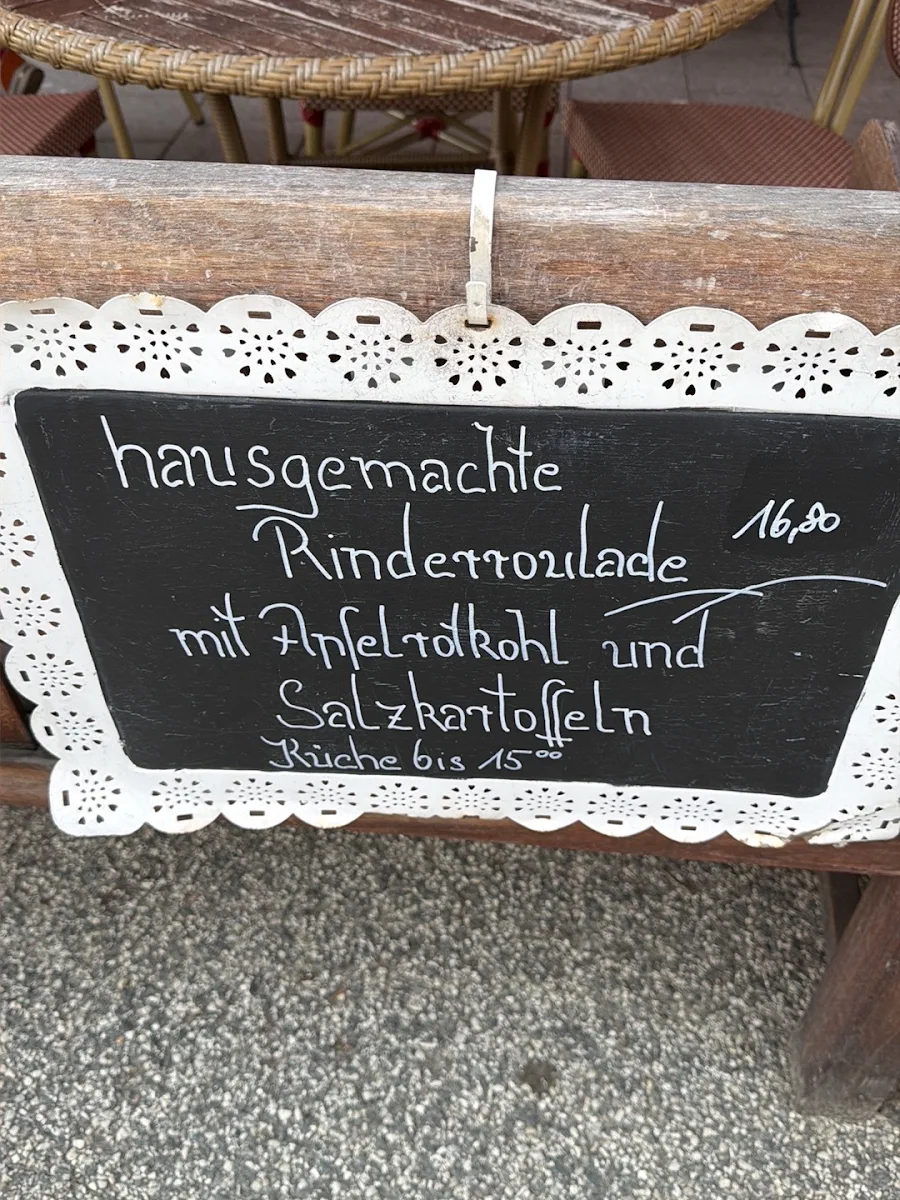 hausgemachte
Rinderroulade 16,80
mit Apfelrotkohl und
Salzkartoffeln
Küche bis 15⁰⁰